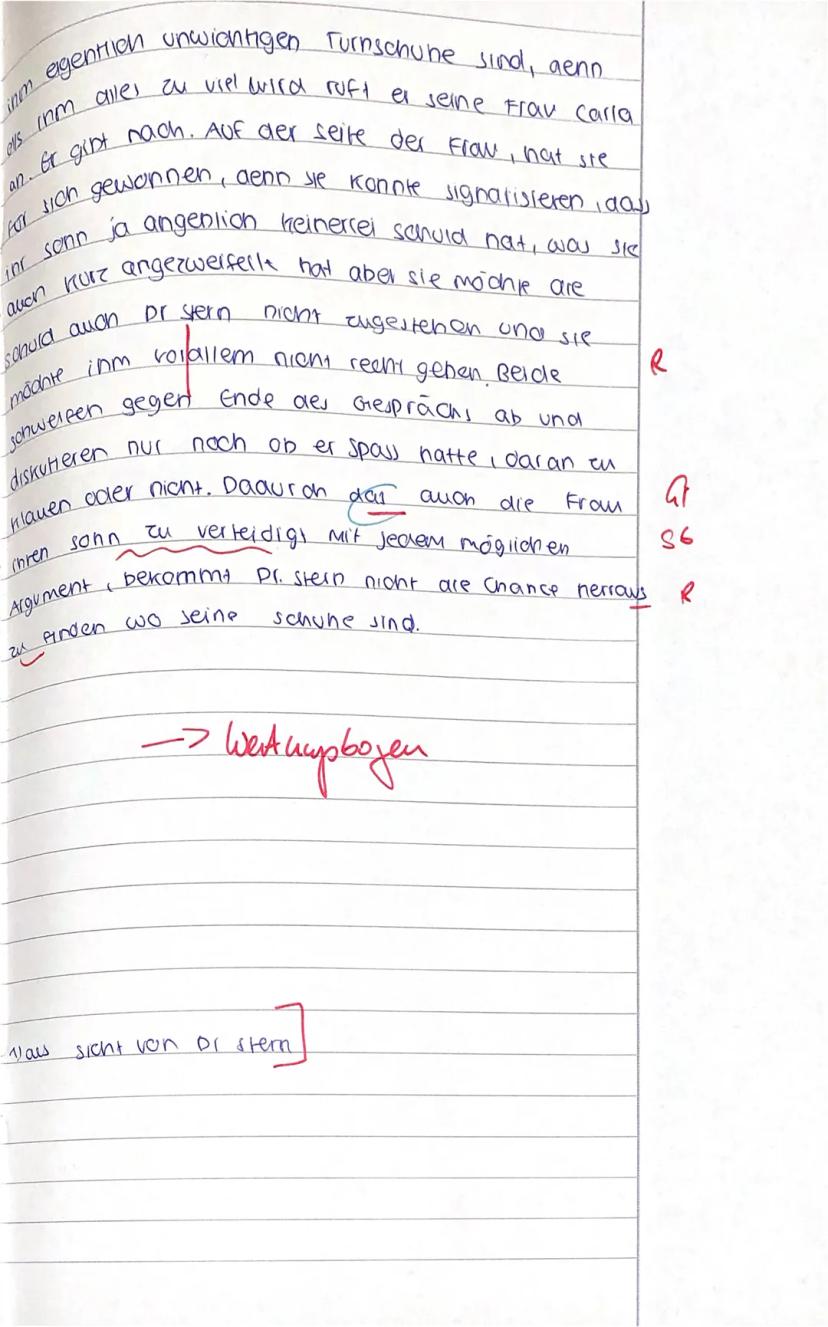 ihm eigentlich unwichtigen Turnschuhe sind, denn
als ihm alles zu viel wird ruft er seine Frau Carla
an. Er gibt nach. Auf der seite der Frau, hat sie
für sich gewonnen, denn sie konnte signalisieren, dass
ihr sohn ja angeblich keinerlei schuld hat, was sie
auch kurz angezweifelt hat aber sie möchte die
schuld auch Dr stern nicht zugestehen und sie
möchte ihm vorallem nicht recht geben. Beide R
schweifen gegen Ende des Gesprächs ab und
diskutieren nur noch ob er spass hatte, daran zu
klauen oder nicht. Dadurch das auch die Frau Gr
ihren sohn zu verteidigt mit jedem möglichen Sb
Argument, bekommt Dr. stern nicht die Chance herraus R
zu finden wo seine schuhe sind.
-> Wertungsbogen
1) aus sicht von Dr stern